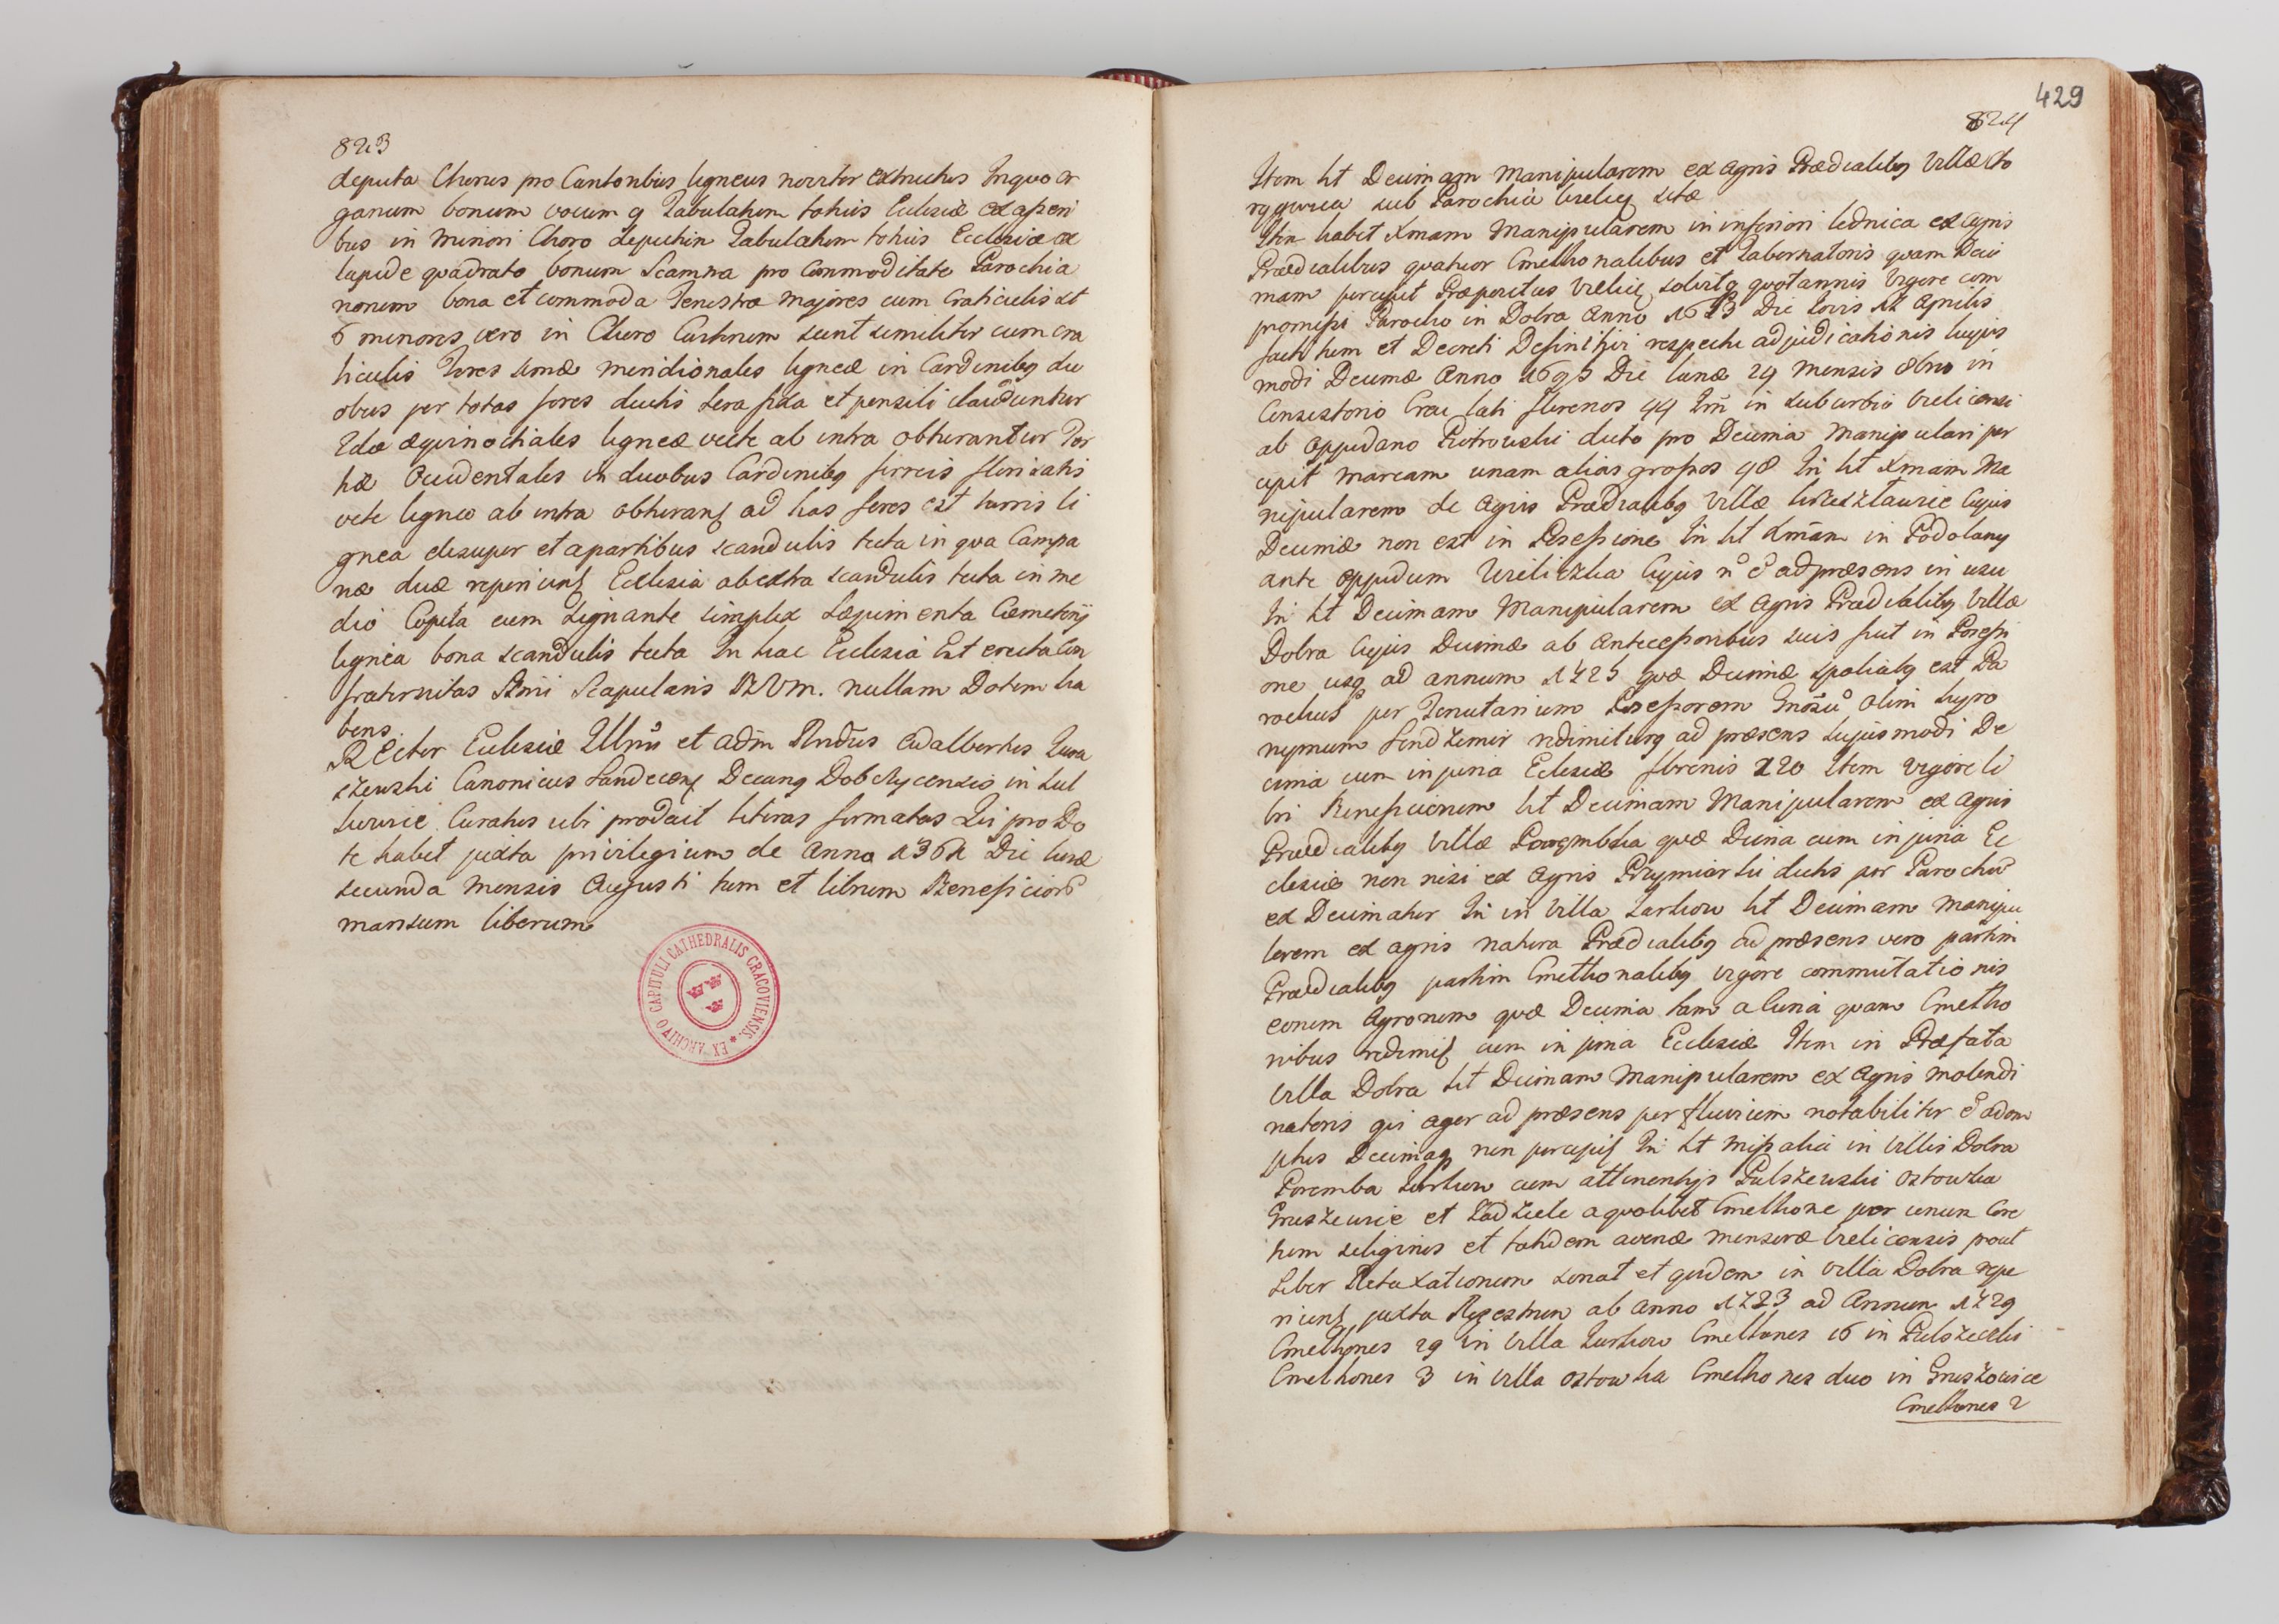 823
deputa Chorus pro Cantoribus ligneus noviter extructus In quo or
ganum bonum vocum 9 Tabulatum totius Ecclesiæ ex asseri
bus in minori Choro depictum Tabulatum totius Ecclesiæ ex
lapide quadrato bonum Scamna pro Commoditate Parochia
norum bona et commoda Fenestræ majores cum Craticulis st
6 minores vero in Choro sunt similiter cum cra
ticulis Fores meridionales ligneæ in Cardinibq du
obus per totas fores ductis sera fixa et pensili clauduntur
æquinoctiales ligneæ vecte ab intra obturantur Por
tæ Occidentales in duobus Cardinibq ferreis
vecte ligneo ab intra obturant ad has fores est turris li
gnea desuper et a partibus scandulis tecta in qua Campa
næ duæ reperiunt Ecclesia ab extra scandulis tecta in me
dio Copula cum signante simplex Sepimenta Cæmeterij
lignea bona scandulis tecta In hac Ecclesia Est erecta Con
fraternitas Smi Scapularis BVM. nullam Dotem ha
bens.
Rector Ecclesiæ Illris et adm Rndus Adalbertus
Canonicus Sandecens Decanq Dobczycensis in
Curatus ubi produxit literas formatas Qui pro Do
te habet juxta privilegium de Anno 1361 Die lunæ
secunda mensis Augusti tum et librum Beneficior
mansum liberum
EX ARCHIVO CAPITULI CATHEDRALIS CRACOVIENSIS. *
429
824
Item ht Decimam Manipularem ex agris Prædialibq Villæ
sub Parochia sitæ
Item habet Xmam Manipularem in inferiori lednica ex Agris
Prædialibus quatuor Cmethonalibus et Tabernatoris quam Deci
mam percipit Præpositus solvitq quotannis Vigore com
promissi Parocho in Dobra Anno 1613 Die Jovis 12 Aprilis
facti tum et Decreti Definitivi respectu adjudicationis hujus
modi Decimæ Anno 1695 Die lunæ 29 Mensis 8bris in
Consistorio Crac lati florenos 44 Itm in suburbio Velicensi
ab Oppidano Piotrowski dicto pro Decima Manipulari per
cipit marcam unam alias grossos 48 In ht Xmam Ma
nipularem de Agris Prædialibq Villæ cujus
Decimæ non est in Possessione In ht Xmam in Podolany
ante Oppidum Wieliczka Cujus n̄ ē ad præsens in usu
In ht Decimam Manipularem ex Agris Prædialibq Villæ
Dobra Cujus Decimæ ab antecessoribus suis fuit in Possessi
one usq ad annum 1725 quæ Decimæ spoliatq est Pa
rochus per Tenutarium Possessorem Gnosū olim Hyero
nymum Sendzimir redimiturq ad præsens hujusmodi De
cima cum injuria Ecclesiæ florenis 120 Item vigore li
bri Beneficiorum ht Decimam Manipularem ex Agris
Prædialibq Villæ quæ Decima cum injuria Ec
clesiæ non nisi ex Agris dictis per Parochū
ex Decimatur In in Villa ht Decimam Manipu
larem ex agris natura Prædialibq ad præsens vero partim
Prædialibq partim Cmethonalibq vigore commutationis
eorum Agrorum quæ Decima tam a Curia quam Cmetho
nibus redimit cum injuria Ecclesiæ Item in Præfata
Villa Dobra ht Decimam Manipularem ex Agris molendi
natoris qui ager ad præsens per fluvium notabiliter ē adem
ptus Decimaq non percipit In ht Missalia in Villis Dobra
Poremba cum attinentijs
et a quolibet Cmethone per unum Core
tum siliginis et totidem avenæ mensuræ Velicensis prout
Liber Retaxationum sonat et quidem in Villa Dobra repe
riunt juxta Regestrum ab Anno 1723 ad Annum 1729
Cmethones 29 In Villa Cmethones 16 in
Cmethones 3 in Villa Cmethones duo in
Cmethones 2